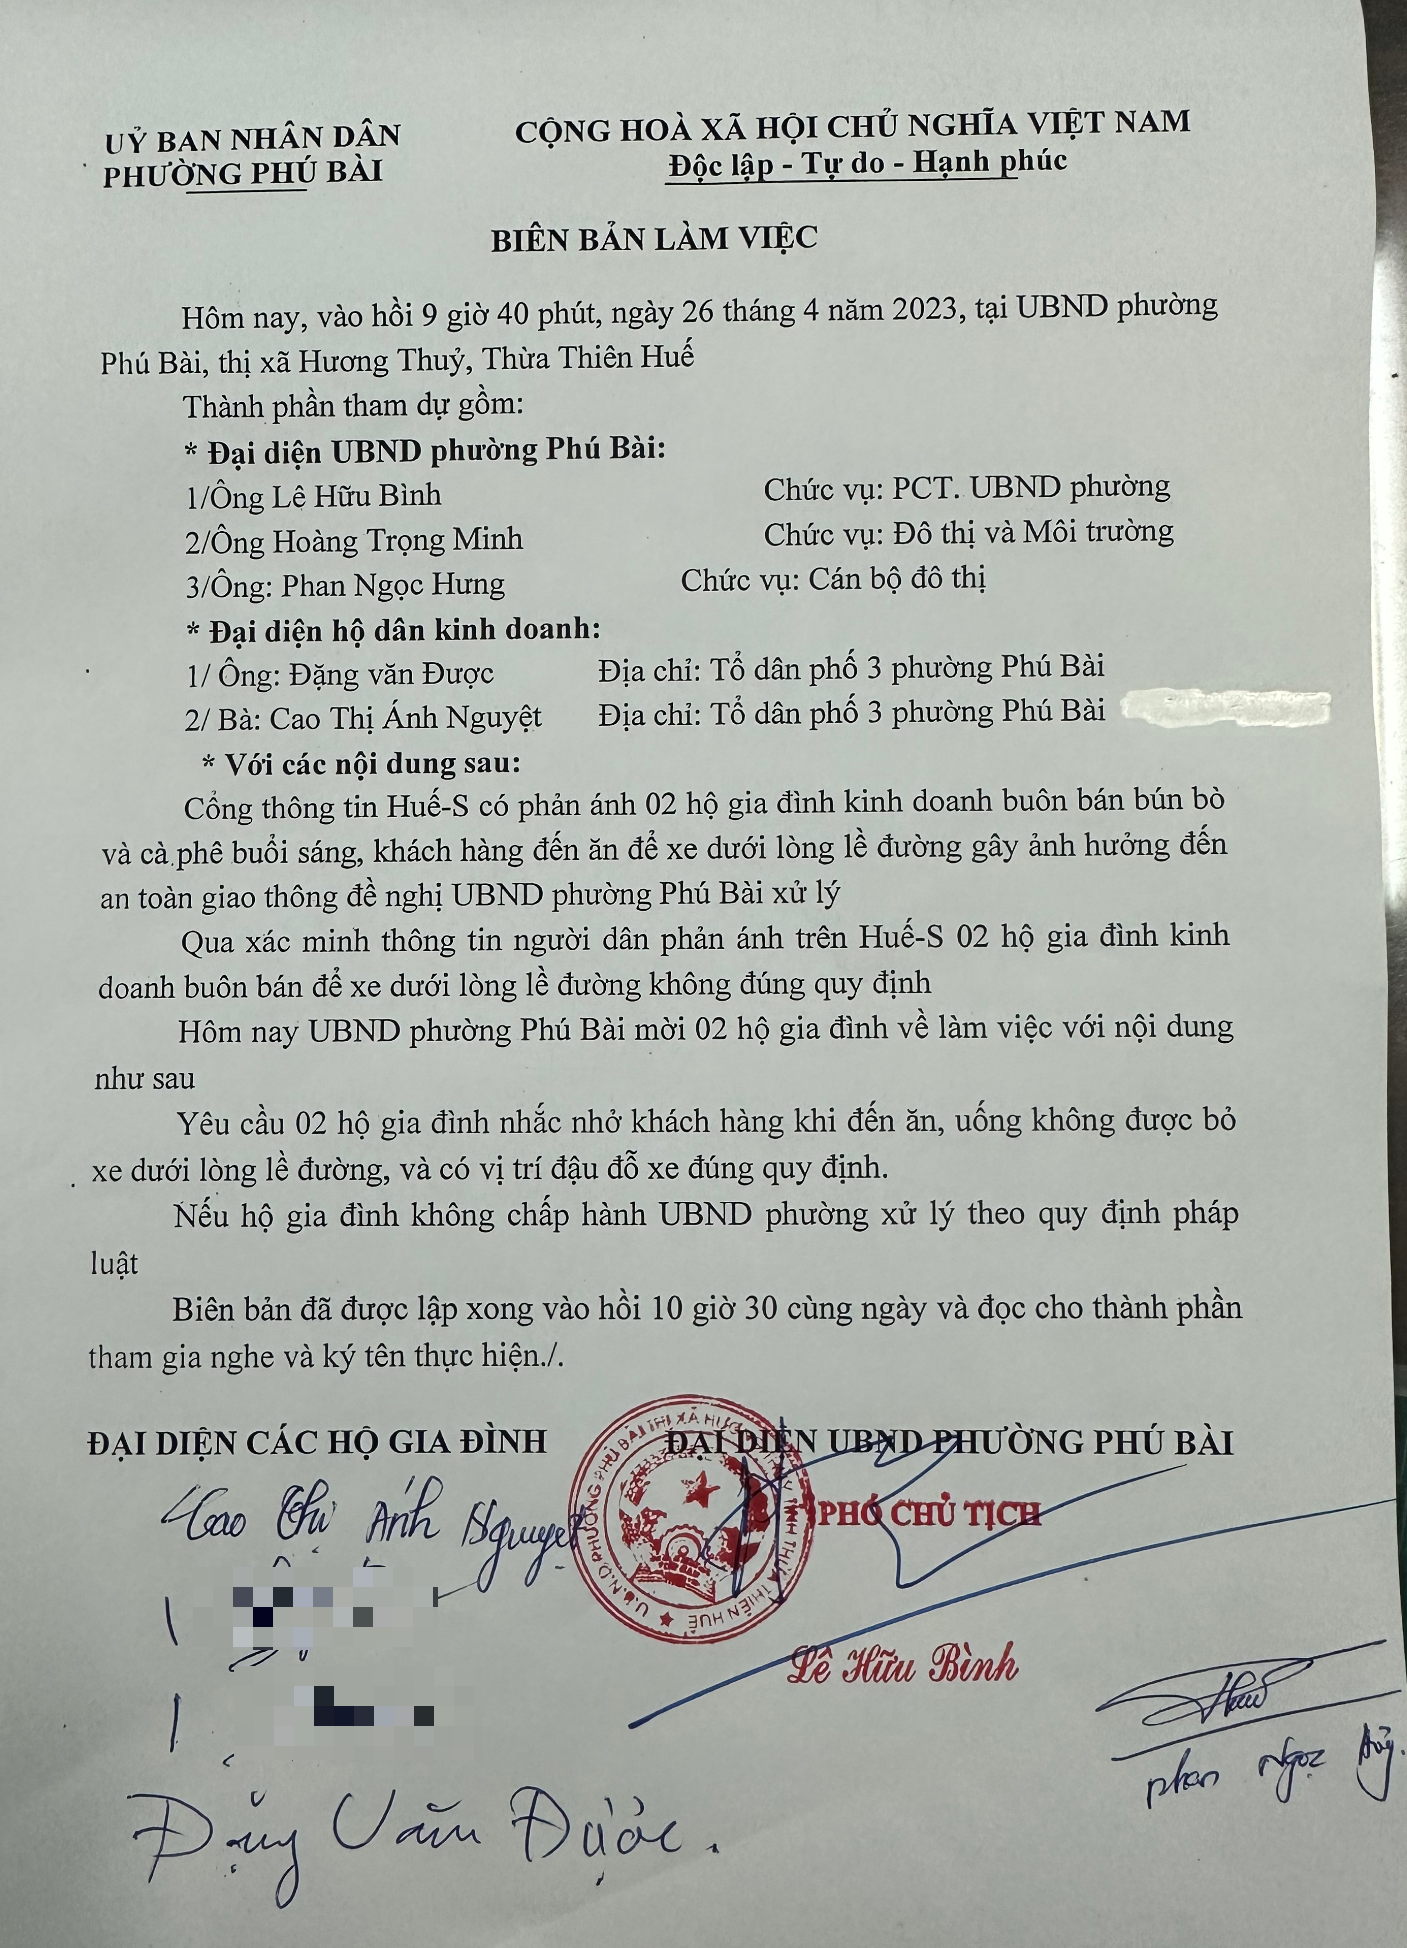 UỶ BAN NHÂN DÂN
PHƯỜNG PHÚ BÀI
CỘNG HOÀ XÃ HỘI CHỦ NGHĨA VIỆT NAM
Độc lập - Tự do - Hạnh phúc
BIÊN BẢN LÀM VIỆC
Hôm nay, vào hồi 9 giờ 40 phút, ngày 26 tháng 4 năm 2023, tại UBND phường
Phú Bài, thị xã Hương Thuỷ, Thừa Thiên Huế
Thành phần tham dự gồm:
* Đại diện UBND phường Phú Bài:
1/Ông Lê Hữu Bình Chức vụ: PCT. UBND phường
2/Ông Hoàng Trọng Minh Chức vụ: Đô thị và Môi trường
3/Ông: Phan Ngọc Hưng Chức vụ: Cán bộ đô thị
* Đại diện hộ dân kinh doanh:
1/ Ông: Đặng văn Được Địa chỉ: Tổ dân phố 3 phường Phú Bài
2/ Bà: Cao Thị Ánh Nguyệt Địa chỉ: Tổ dân phố 3 phường Phú Bài
* Với các nội dung sau:
Cổng thông tin Huế-S có phản ánh 02 hộ gia đình kinh doanh buôn bán bún bò
và cà phê buổi sáng, khách hàng đến ăn để xe dưới lòng lề đường gây ảnh hưởng đến
an toàn giao thông đề nghị UBND phường Phú Bài xử lý
Qua xác minh thông tin người dân phản ánh trên Huế-S 02 hộ gia đình kinh
doanh buôn bán để xe dưới lòng lề đường không đúng quy định
Hôm nay UBND phường Phú Bài mời 02 hộ gia đình về làm việc với nội dung
như sau
Yêu cầu 02 hộ gia đình nhắc nhở khách hàng khi đến ăn, uống không được bỏ
xe dưới lòng lề đường, và có vị trí đậu đỗ xe đúng quy định.
Nếu hộ gia đình không chấp hành UBND phường xử lý theo quy định pháp
luật
Biên bản đã được lập xong vào hồi 10 giờ 30 cùng ngày và đọc cho thành phần
tham gia nghe và ký tên thực hiện./.
ĐẠI DIỆN CÁC HỘ GIA ĐÌNH
Cao Thị Ánh Nguyệt
Đặng Văn Được.
ĐẠI DIỆN UBND PHƯỜNG PHÚ BÀI
PHÓ CHỦ TỊCH
U.B.N.D PHƯỜNG PHÚ BÀI THỊ XÃ HƯƠNG THỦY TỈNH THỪA THIÊN HUẾ
Lê Hữu Bình
Phan Ngọc